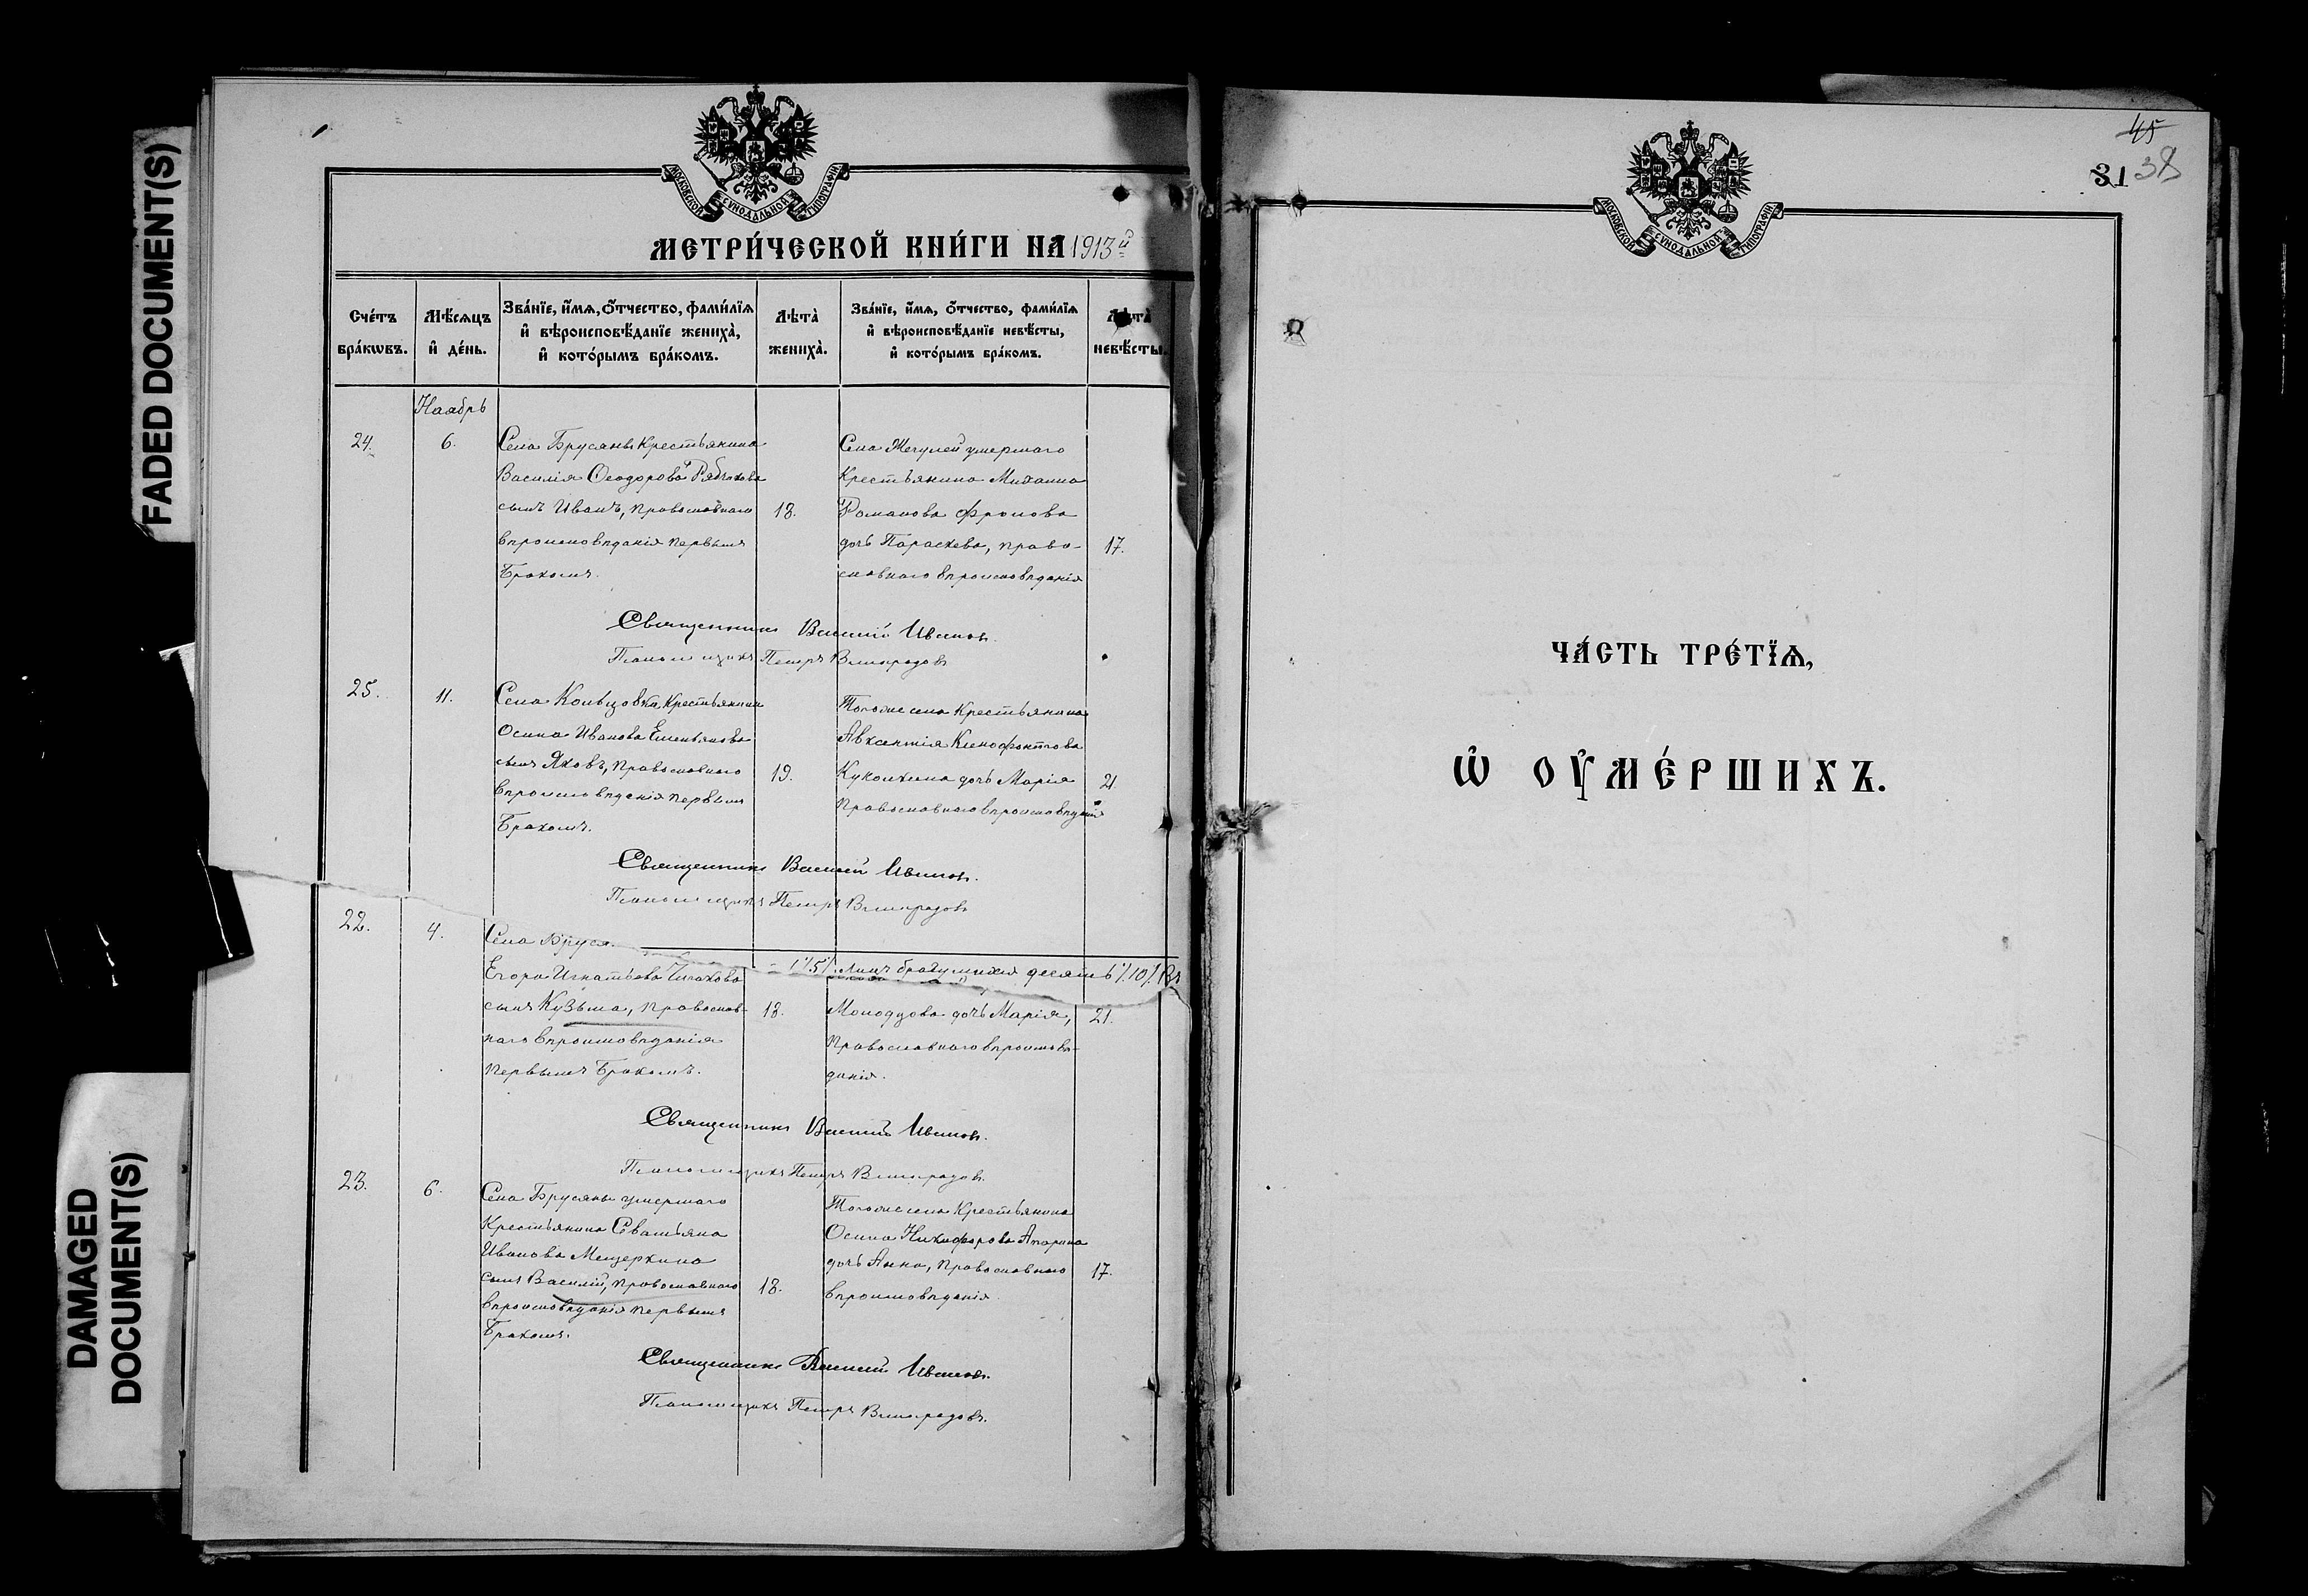 FADED DOCUMENT(S)
DAMAGED
DOCUMENT(S)
МОСКОВСКОЙ СѴНОДАЛЬНОЙ ТИПОГРАФІИ
МЕТРИ́ЧЕСКОЙ КНИ́ГИ НА 1913й
Сче́тъ бра́кѡвъ.
Мѣ́сяцъ и҆ де́нь.
Зва́нїе, и҆́мя, ѻ҆́тчество, фами́лїя и҆ вѣроисповѣ́данїе женихà, и҆ кото́рымъ бра́комъ.
Лѣтà женихà.
Зва́нїе, и҆́мя, ѻ҆́тчество, фами́лїя и҆ вѣроисповѣ́данїе невѣ́сты, и҆ кото́рымъ бра́комъ.
Лѣтà невѣ́сты.
Ноябрь
24.
6.
Села Брусянъ крестьянина
Василія Ѳеодорова
сынъ Иванъ, православнаго
вѣроисповѣданія первымъ
бракомъ.
18.
Села Жегулей умершаго
крестьянина Михаила
Романова Фролова
дочь Параскева, право-
славнаго вѣроисповѣданія
17.
Священникъ Василій Ивановъ.
Псаломщикъ Петръ Виноградовъ
25.
11.
Села Кольцовка, крестьянина
Осипа Иванова Емельянова
сынъ Яковъ, православнаго
вѣроисповѣданія первымъ
бракомъ.
19.
Тогоже села крестьянина
Авксентія Ксенофонтова
дочь Марія
православнаго вѣроисповѣданія
21.
Священникъ Василій Ивановъ.
Псаломщикъ Петръ Виноградовъ
22.
4.
Села Бруся
десять %10%
Егора Игнатьева
сынъ Кузьма, православ-
наго вѣроисповѣданія
первымъ бракомъ.
18.
Молодцова дочь Марія,
православнаго вѣроисповѣ-
данія.
21.
Священникъ Василій Ивановъ.
Псаломщикъ Петръ Виноградовъ.
23.
6.
Села Брусянъ умершаго
крестьянина Севастьяна
Иванова Мещеркина
сынъ Василій, православнаго
вѣроисповѣданія первымъ
бракомъ.
18.
Тогоже села крестьянина
Осипа Никифорова
дочь Анна, православнаго
вѣроисповѣданія
17.
Священникъ Василій Ивановъ.
Псаломщикъ Петръ Виноградовъ.
45
31 38
МОСКОВСКОЙ СѴНОДАЛЬНОЙ ТИПОГРАФІИ
ЧА́СТЬ ТРЕ́ТЇѦ,
Ѡ҆ ОУ҆МЕ́РШИХЪ.